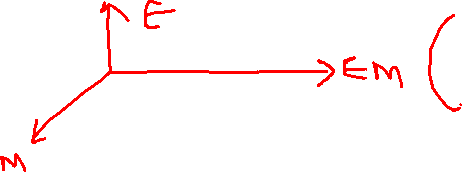 E
EM (
M